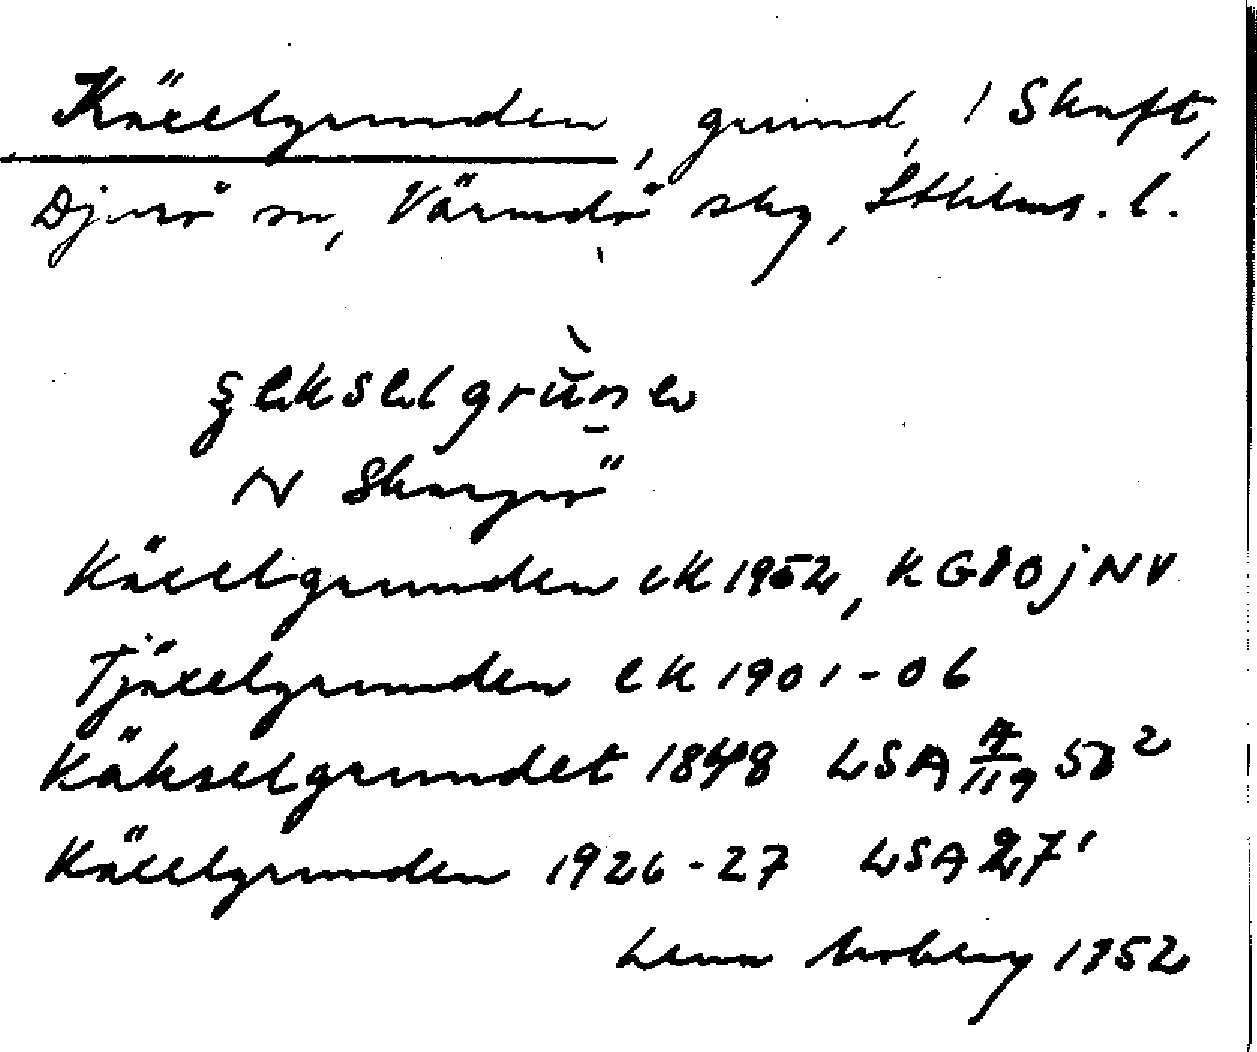 Käxelgrunden, grund, 1 Skaft,
Djurö sn, Värmdö skg, Sthlms. l.
N Skarprö
Käxelgrunden eK 1952, KG80jNV
Tjäxelgrunden eK 1901-06
Käkselgrundet 1848 LSA
Käxelgrunden 1926-27 LSA 27'
Lena Moberg 1952